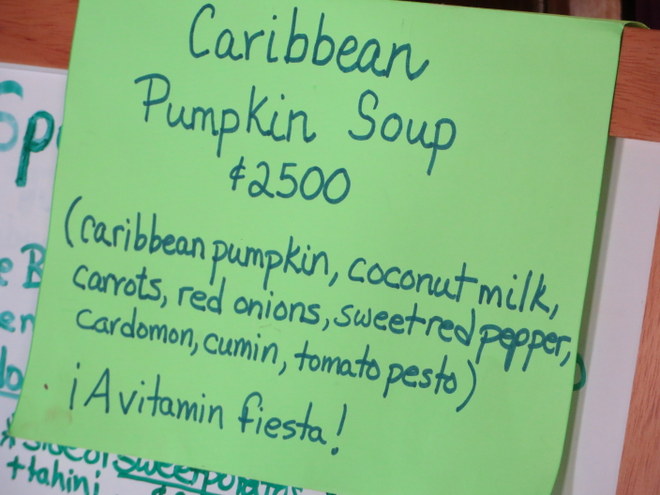 Caribbean
Pumpkin Soup
¢2500
(caribbean pumpkin, coconut milk,
carrots, red onions, sweet red pepper,
cardomon, cumin, tomato pesto)
¡A vitamin fiesta!
Sp
e B
en
+tahini